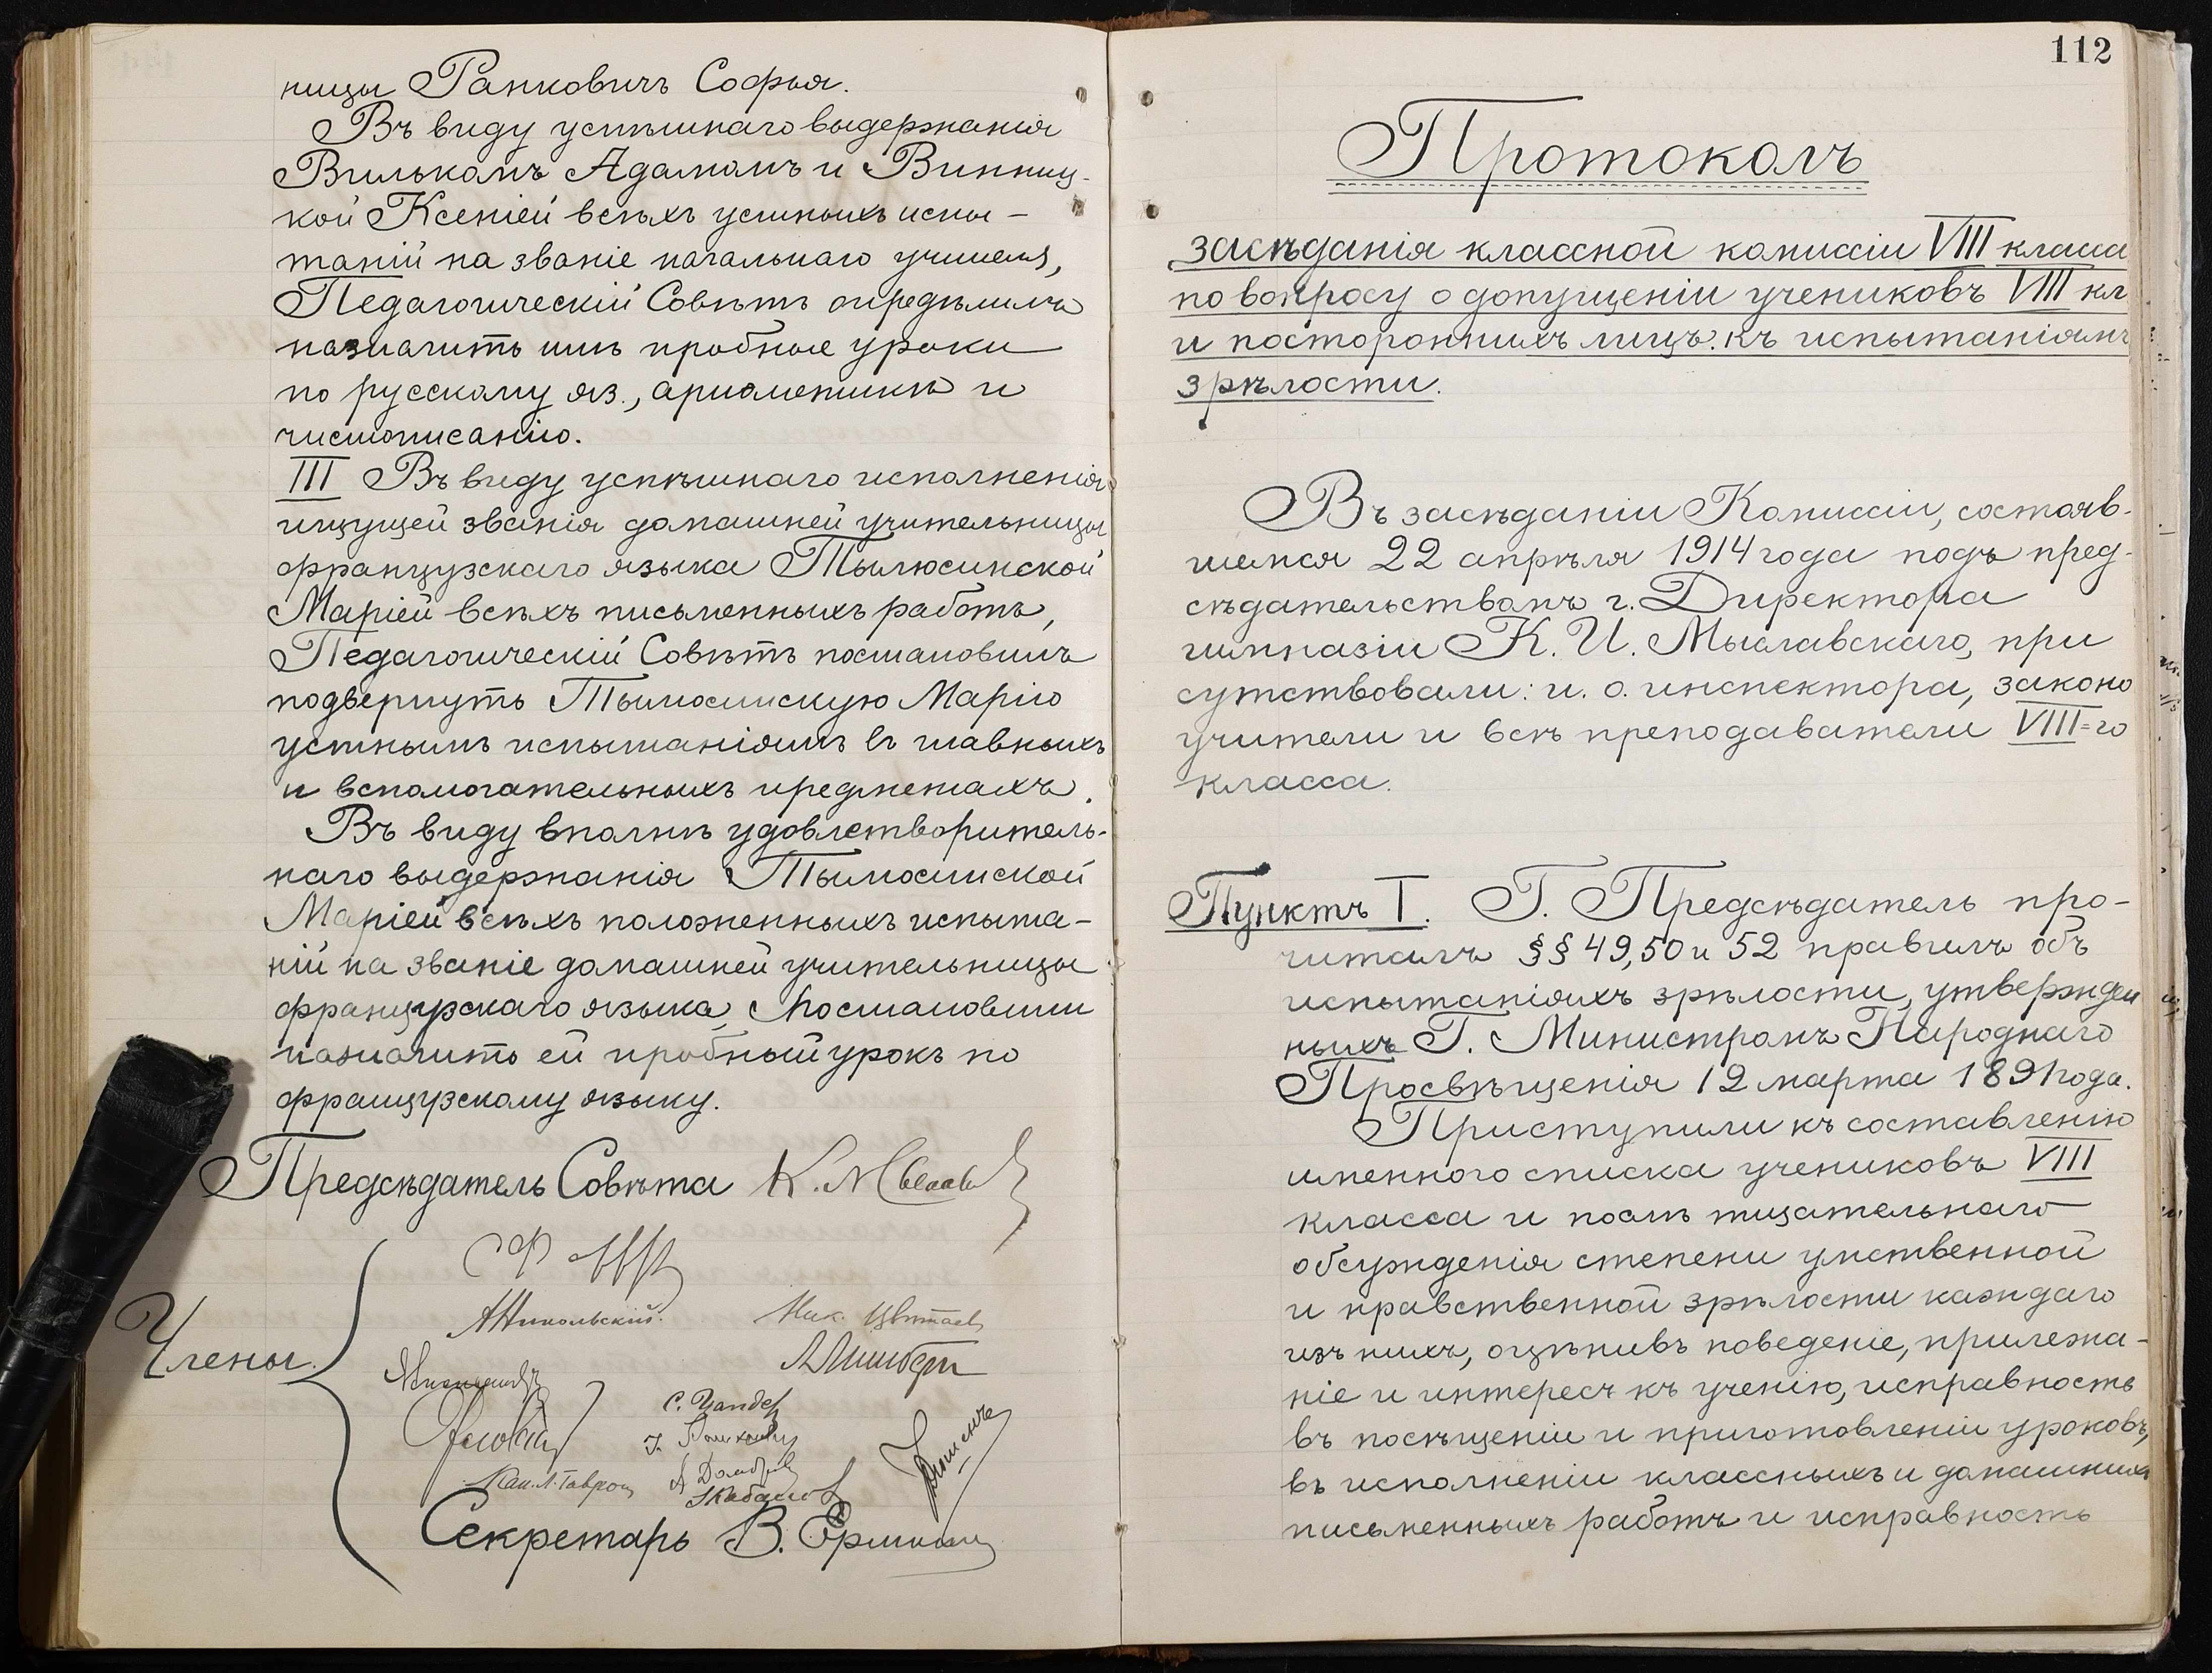 ницы Ранковичъ Софья.
Въ виду успѣшнаго выдержанія
Вилькомъ Адамомъ и Винниц-
кой Ксеніей всѣхъ устныхъ испы-
таній на званіе начальнаго учителя,
Педагогическій Совѣтъ опредѣлилъ
назначить имъ пробные уроки
по русскому яз., ариѳметикѣ и
чистописанію.
III Въ виду успѣшнаго исполненія
ищущей званія домашней учительницы
французскаго языка Тылюсинской
Маріей всѣхъ письменныхъ работъ,
Педагогическій Совѣтъ постановилъ
подвергнуть Тылюсинскую Марію
устнымъ испытаніямъ въ главныхъ
и вспомогательныхъ предметахъ.
Въ виду вполнѣ удовлетворитель-
наго выдержанія Тылюсинской
Маріей всѣхъ положенныхъ испыта-
ній на званіе домашней учительницы
французскаго языка, постановили
назначить ей пробный урокъ по
французскому языку.
Предсѣдатель Совѣта К.
АНикольскій. Ник. Цвѣтаев
Члены.
С. Цандер
Секретарь В.
112
Протоколъ
засѣданія классной комиссіи VIII класса
по вопросу о допущеніи учениковъ VIII кл
и постороннихъ лицъ къ испытаніямъ
зрѣлости.
Въ засѣданіи Комиссіи, состояв-
шемся 22 апрѣля 1914 года подъ пред-
сѣдательствомъ г. Директора
гимназіи К. И. Мыславскаго, при
сутствовали: и. о. инспектора, законо
учители и всѣ преподаватели VIII=го
класса.
Пунктъ I. Г. Предсѣдатель про-
читалъ §§ 49, 50 и 52 правилъ объ
испытаніяхъ зрѣлости, утвержден
ныхъ Г. Министромъ Народнаго
Просвѣщенія 12 марта 1891 года.
Приступили къ составленію
именного списка учениковъ VIII
класса и послѣ тщательнаго
обсужденія степени умственной
и нравственной зрѣлости каждаго
изъ нихъ, оцѣнивъ поведеніе, прилежа-
ніе и интересъ къ ученію, исправность
въ посѣщеніи и приготовленіи уроковъ,
въ исполненіи классныхъ и домашнихъ
письменныхъ работъ и исправность